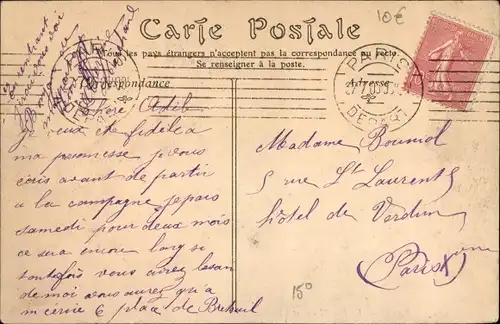 10€
Carte Postale
Tous les pays étrangers n'acceptent pas la correspondance au recto.
Se renseigner à la poste.
Correspondance
Adresse
PARIS
DEPART
PARIS
DEPART
Je veux etre fidel a
ma promesse je vous
ecris avant de partir
a la campagne je pars
samedi pour deux mois
ce sera encore long si
toutefois vous aurez besoin
de moi vous aurez qu'a
m'ecrire 6 place de Breteuil
Madame Bouniol
5 rue St Laurent 5
hôtel de Verdun
Paris X
150